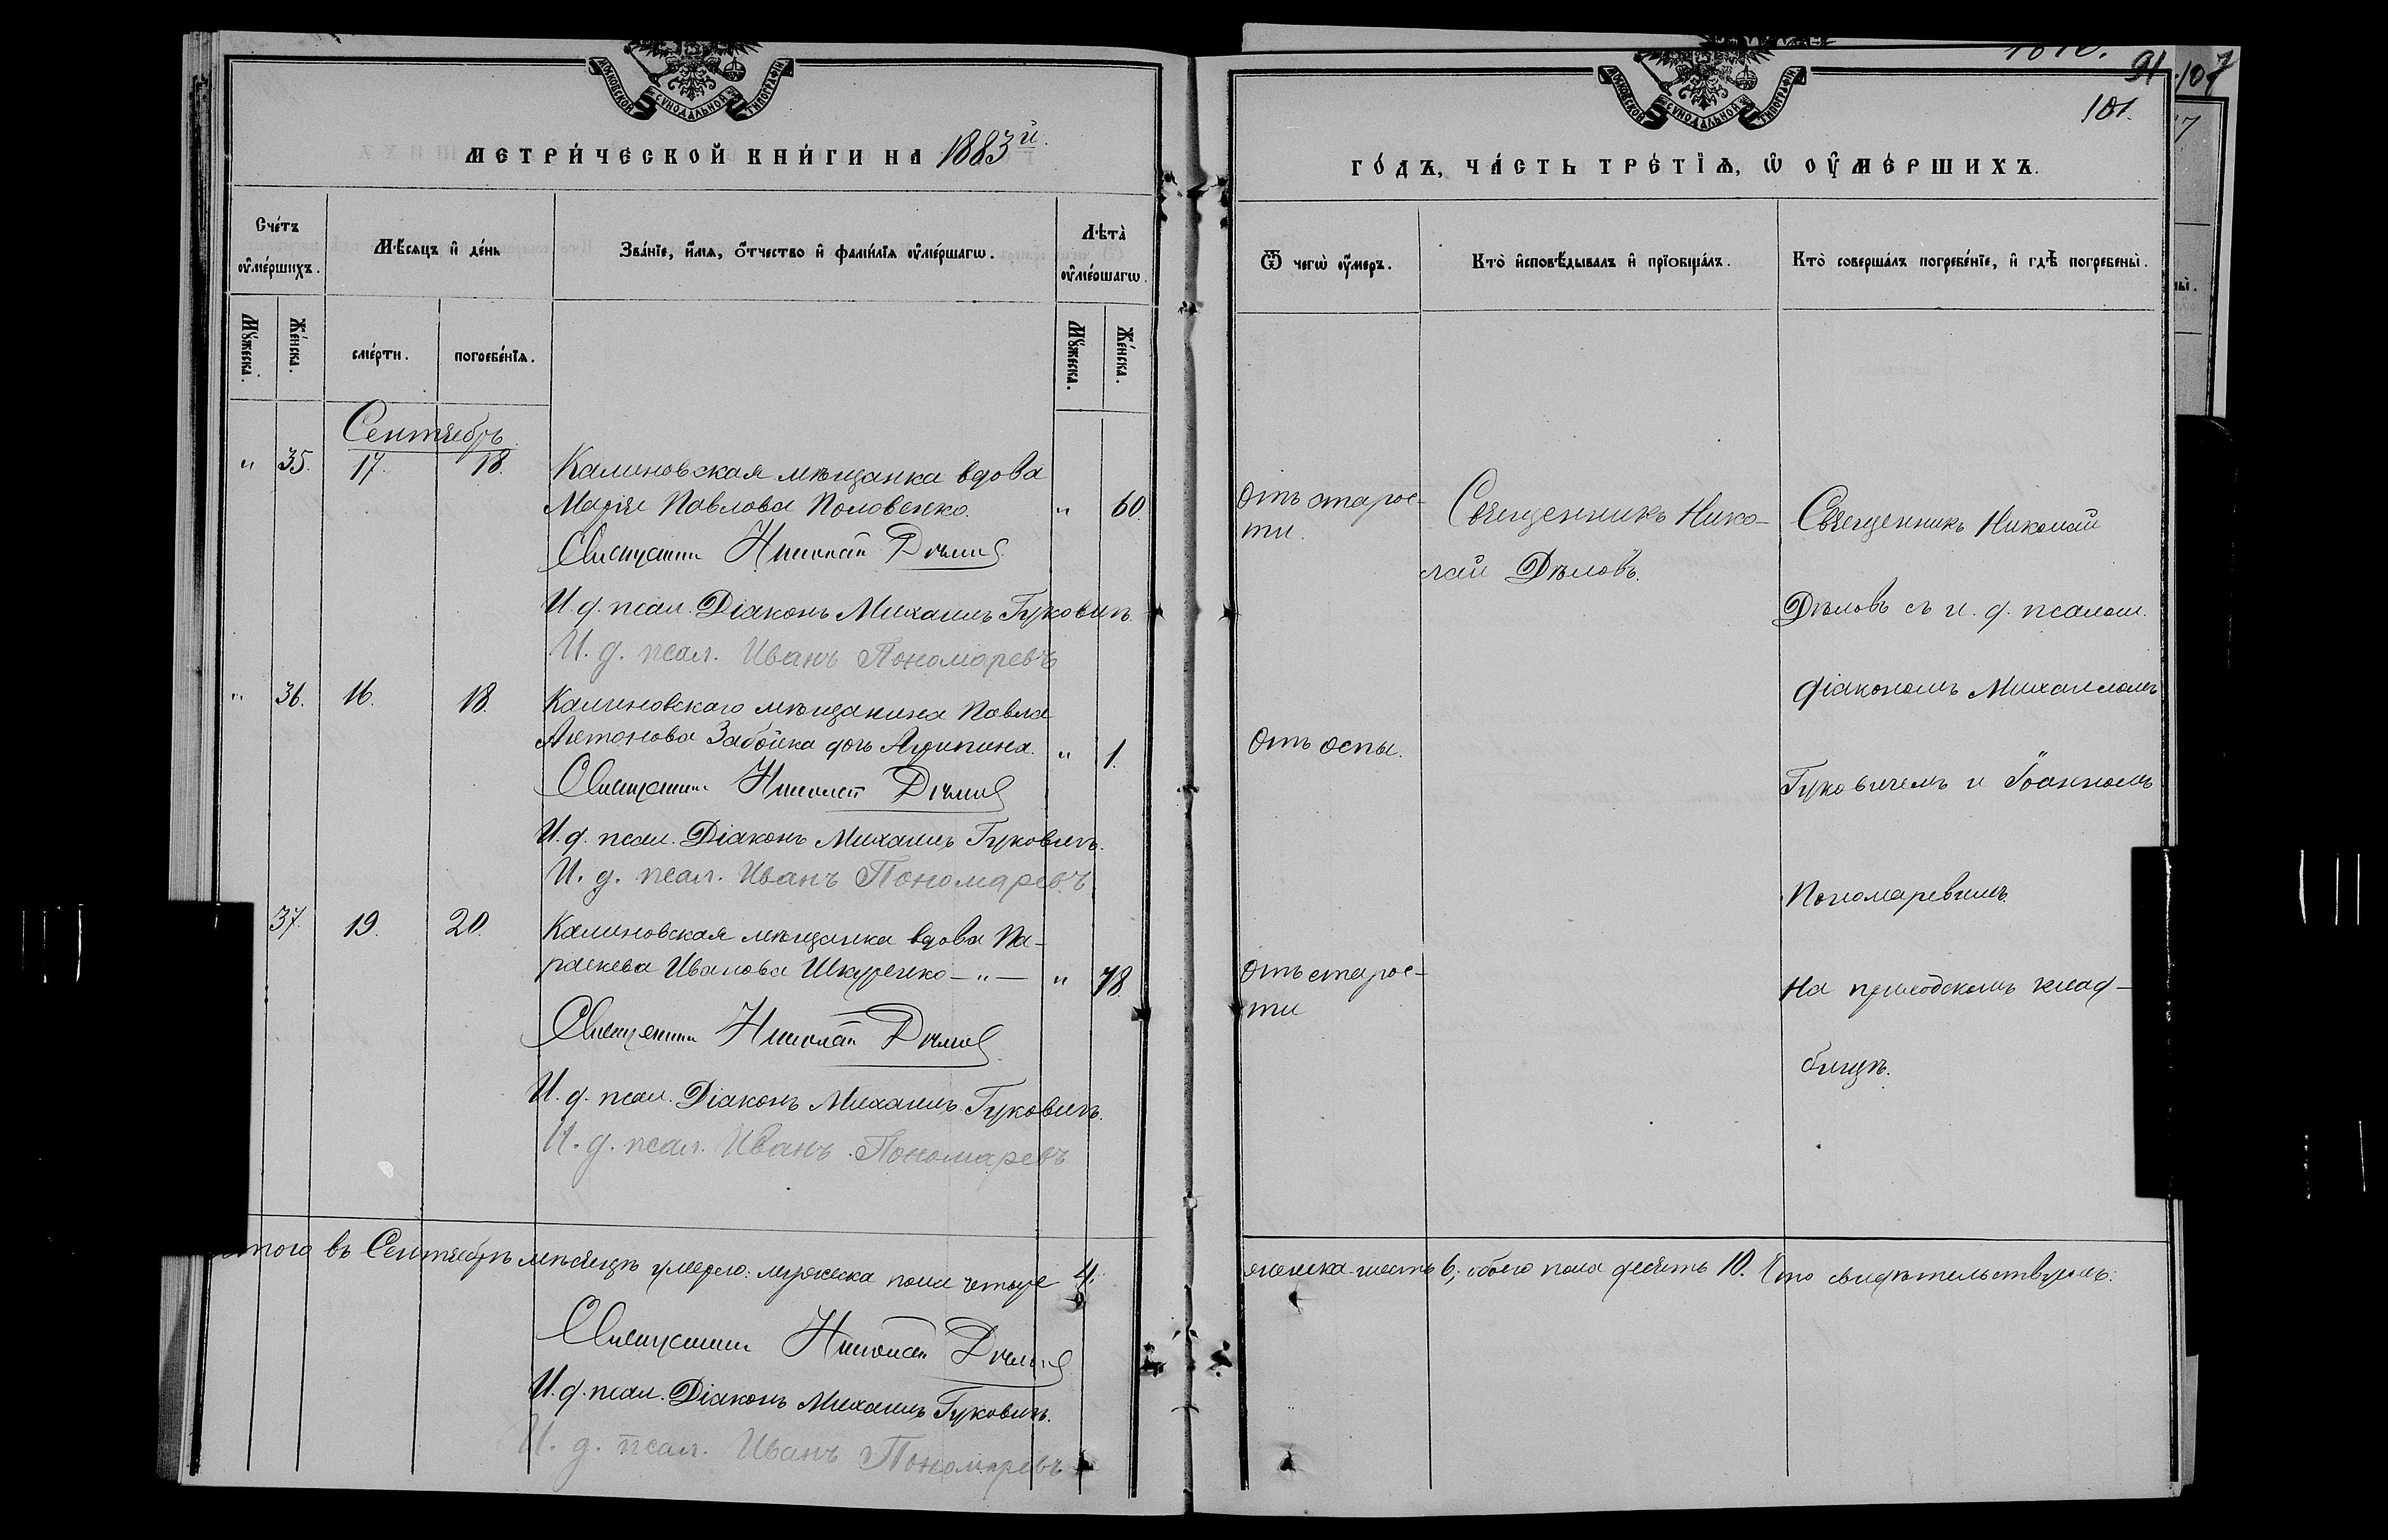 МОСКОВСКОЙ СѴНОДАЛЬНОЙ ТИПОГРАФІИ
МЕТРИ́ЧЕСКОЙ КНИ́ГИ НА 1883й.
Сче́тъ оу҆ме́ршихъ.
Мѣ́сяцъ и҆ де́нь
Зва́нїе, и҆́мѧ, ѻ҆́тчество и҆ фами́лїѧ оу҆ме́ршагѡ.
Лѣта̀ оу҆ме́ршагѡ.
Мꙋ́жеска.
Же́нска.
сме́рти.
погребе́нїѧ.
Мꙋ́жеска.
Же́нска.
Сентябрь
" 35. 17. 18. Калиновская мѣщанка вдова
Марія Павлова Половенко. " 60.
Священникъ Николай Дѣловъ
И. д. псал. Діаконъ Михаилъ Гуковичъ.
И. д. псал. Иванъ Пономаревъ
" 36. 16. 18. Калиновскаго мѣщанина Павла
Антонова Забойка дочь Агрипина. " 1.
Священникъ Николай Дѣловъ
И. д. псал. Діаконъ Михаилъ Гуковичъ.
И. д. псал. Иванъ Пономаревъ
37. 19. 20. Калиновская мѣщанка вдова Па-
раскева Иванова Шкуренко — " — " 78.
Священникъ Николай Дѣловъ
И. д. псал. Діаконъ Михаилъ Гуковичъ.
И. д. псал. Иванъ Пономаревъ
Итого въ Сентябрѣ мѣсяцѣ умерло: мужеска пола четыре 4;
Священникъ Николай Дѣловъ
И. д. псал. Діаконъ Михаилъ Гуковичъ.
И. д. псал. Иванъ Пономаревъ
91 107
101.
МОСКОВСКОЙ СѴНОДАЛЬНОЙ ТИПОГРАФІИ
ГО́ДЪ, ЧА́СТЬ ТРЕ́ТЇѦ, Ѡ҆ ОУ҆МЕ́РШИХЪ.
Ѿ чегѡ̀ оу҆́меръ.
Кто̀ и҆сповѣ́дывалъ и҆ прїѻбща́лъ.
Кто̀ соверша́лъ погребе́нїе, и҆ гдѣ̀ погребены̀.
Отъ старос-
ти.
Священникъ Нико-
лай Дѣловъ.
Священникъ Николай
Дѣловъ съ и. д. псалом.
діакономъ Михаиломъ
Гуковичемъ и Іоанномъ
Пономаревымъ
На приходскомъ клад-
бищѣ.
Отъ оспы.
Отъ старос-
ти
женска шесть 6; обоего пола десять 10. Что свидѣтельствуемъ: